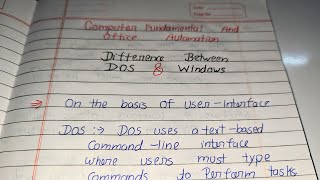 Date
Page No
Computer Fundamental And
Office Automation
Difference Between
DOS & Windows
⇒ On the basis of User-interface
DOS :→ DOS uses a text-based
Command-line interface
where users must type
Commands to Perform tasks